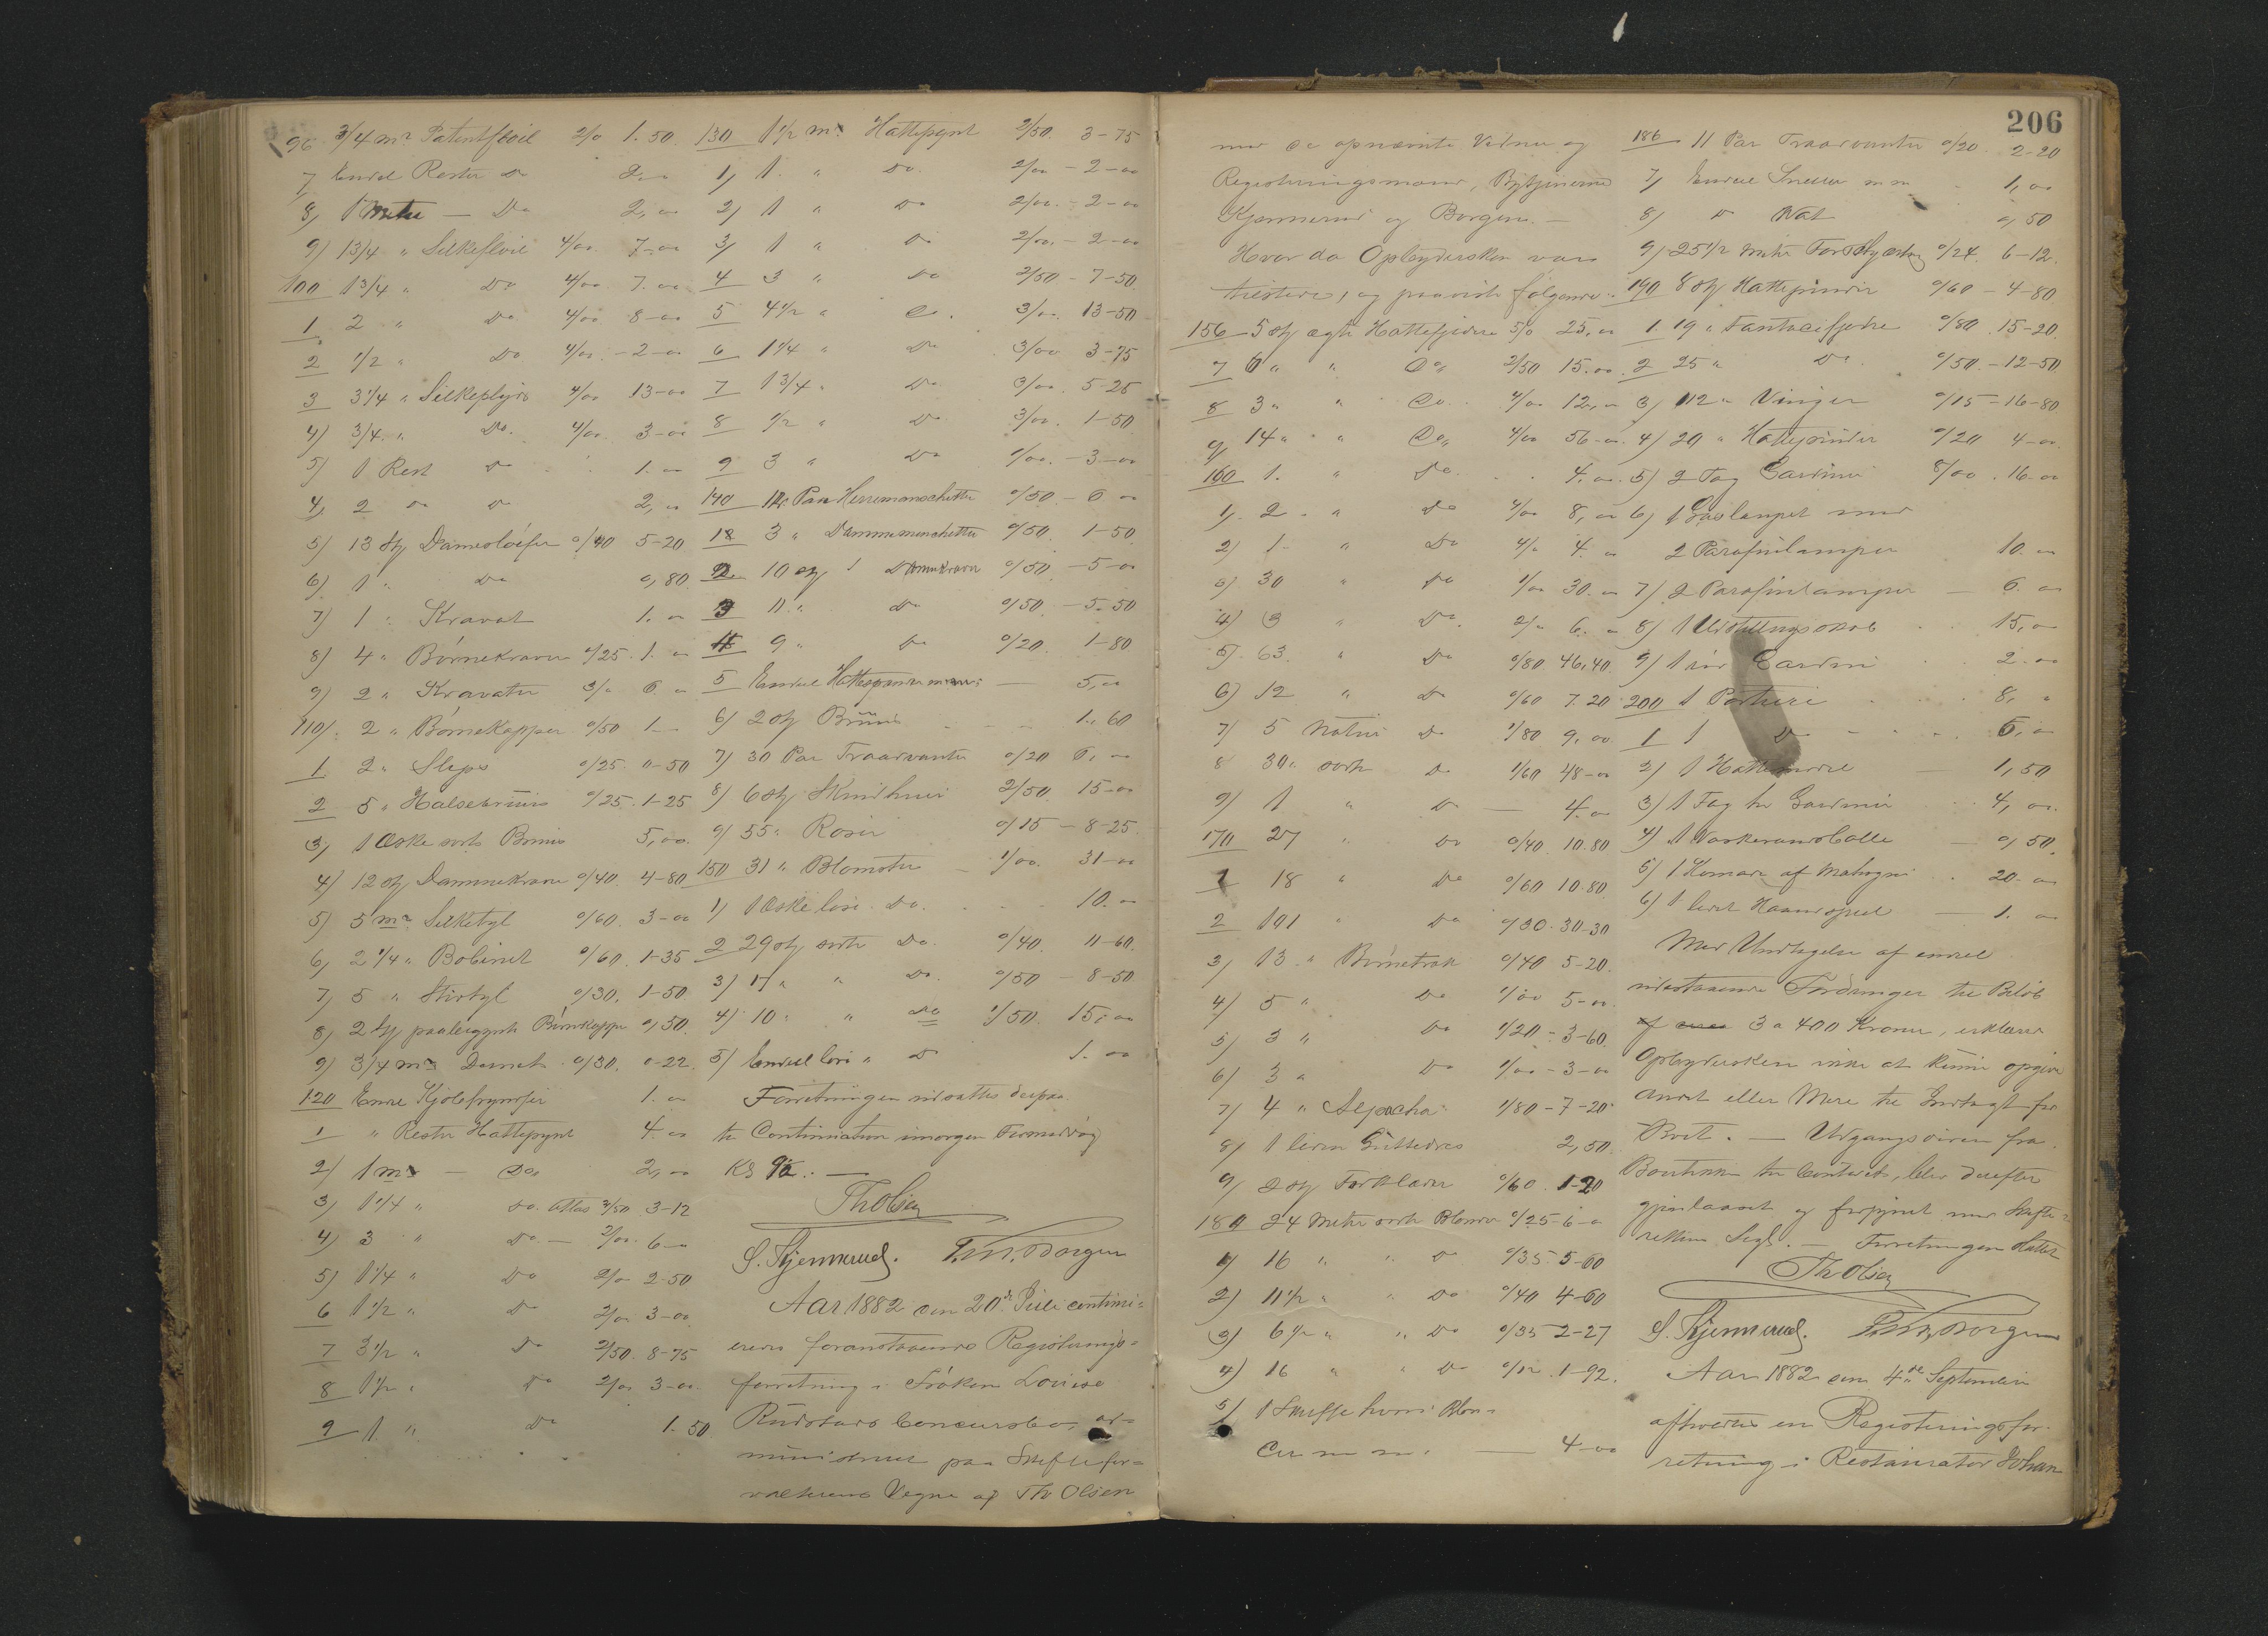 96 3/4 mr Patentfløil 2/0 1.50
7 Endel Rester Do 2,00
8) 1 Meter — Do 2,00
9) 1 3/4 " Silkefløil 4/00 7-00
100 1 3/4 " Do 4/00 7.00
1 2 " Do 4/00 8-00
2 1/2 " Do 4/00 - 2-00
3 3 1/4 " Silkeplyds 4/00 13-00
4) 3/4 " Do. 4/00 3-00
5) 1 Rest Do 1.00
4) 2 Do Do 2,00
5) 13 stk Damesløifer 0/40 5-20
6) 1 " Do 0,80
7) 1 " Kravat 1.00
8) 4 " Børnekraver 0/25 1.00
9) 2 " Kravatter 3/0 6.00
110) 2 " Børnekapper 0/50 1—
1 2 " Slips 0/25 0-50
2 5 " Halsebrüis 0/25 1-25
3) 1 Æske sorte Brüis 5,00
4) 12 stk Damekraver 0/40 4-80
5) 5 mr Silketyl 0/60 3-00
6) 2 1/4 " Bobinet 0/60 1-35
7) 5 " Stivtyl 0/30 1-50
8) 2 stk paabegyndte Børnekapper 0,50
9) 3/4 mr 0/30 0-22
120 Endel Kjolefryndser 1.00
1 " Rester Hattepynt 4.00
2) 1 mr — Do 2,00
3) 1 1/4 " Do. Atlas 2/50 3-12
4) 3 " Do — 2/00 6—
5) 1 1/4 " Do 2/00 2-50
6 1 1/2 " Do 2/00 3-00
7 3 1/2 " Do 2/50 8-75
8 1 1/2 " Do 2/00 3-00
9 1 " Do 1.50
130 1 1/2 mr Hattepynt 2/50 3-75
1) 1 " Do 2/00 - 2-00
2) 1 " Do 2/00 - 2-00
3) 1 " Do 2/00 - 2-00
4 3 " Do 2/50 - 7-50
5 4 1/2 " Do. 3/00 13-50
6 1 1/4 " Do 3/00 3-75
7 1 3/4 " Do 3/00 5-25
8 1/2 " Do 3/00 1-50
9 3 " Do 1/00 - 3-00
140 12 Par Herremanschetter 0/50 - 6 00
3 " Damemanschetter 0/50 1-50
2 10 stk Damekraver 0/50 - 5-00
3 11 " Do 0/50 - 5-50
4 9 " Do 0/20 1-80
5 Endel — 5,00
6) 2 stk Brüis 1,60
7) 30 Par Traadvanter 0/20 6,00
8) 6 stk Skindhuer 2/50 15-00
9) 55 " Roser 0/15 - 8-25
150 31 " Blomster 1/00 31-00
1) 1 Æske løse Do. 10.00
2 29 stk sorte Do. 0/40 11-60
3) 17 " " Do. 0/50 - 8-50
4) 10 " " Do 1/50 15,00
5) Endel løse " Do 1.00
Forretningen udsattes derpaa
til Continiation imorgen Formiddag
Kl 9 1/2. —
Th Olsen
S. Kjennerud. P. M. Borgen
Aar 1882 den 20de Juli continu-
eredes foranstaaende Registrerings-
forretning i Frøken Louise
Rüdstads Concursbo, ad-
ministreret paa Skiftefor-
valterens Vegne af Th Olsen
206
med de opnævnte Vidner og
Registreringsmænd, Bytjenerne
Kjennerud og Borgen. —
Hvor da Opbydersken var
tilstede, og paaviste følgende:
156 5 stk ægte Hattefjedre 5/0 25,00
7 6 " " Do 2/50 15.00
8 3 " " Do. 4/00 12,00
9) 14 " " Do 4/00 56-00
160 1. " Do. 4.00
1) 2 " Do 4/00 8,00
2) 1 " Do 4/0 4.00
3) 30 " Do 1/00 30.00
4) 3 " Do. 2/0 6.00
5) 63 " Do 0/80 46,40
6) 12 " Do 0/60 7.20
7) 5 Do 1/80 9,00
8 30 " sorte Do 1/60 48-00
9) 1 " Do — 4.00
170 27 " Do 0/40 10.80
1 18 " Do 0/60 10.80
2 101 " Do 0/30 30-30
3) 13 " Børnetræk 0/40 5-20
4) 5 " Do 1/00 5-00
5) 3 " Do 1/20 - 3-60
6) 3 " Do 1/00 - 3-00
7) 4 " Alpacha 1/80 - 7-20
8) 1 liden 2,50
9) 2 stk Forklæder 0/60 1-20
180 24 Meter sorte Blonder 0/25 6-0
1) 16 " " Do 0/35 5-60
2) 11 1/2 " " Do 0/40 4-60
3) 6 1/2 " " Do 0/35 2-27
4) 16 " " Do 0/12 1-92
5) 1 Skuffe hvide Blon-
der m m. — 4-00
186 11 Par Traadvanter 0/20 2-20
7) Endel Snelle m m 1,00
8) Do Vat 0,50
9) 25 1/2 Meter 0/24 6-12
190 8 stk Hattepinder 0/60 - 4-80
1 19 " Fantasifjedre 0/80 15-20
2 25 " Do. 0/50 - 12-50
3) 112 " Vinger 0/15 - 16-80
4) 20 " Hattepinder 0/20 4-00
5) 2 Fag Gardiner 8/00 16-00
6) 1 Gaslampet med
2 Parafinlamper 10.00
7) 2 Parafinlamper — 6.00
8) 1 Udstillingsskab 15,00
9) 1 Gardin 2.00
200 1 Portiere 8,"
1 1 Do 6,00
2) 1 — 1,50
3) 1 Fag hv Gardiner 4,00
4) 1 Vaskevandsballe — 0,50
5) 1 Komode af Mahogni 20-00
6) 1 lidet Haandspeil — 1.00
Med Undtagelse af endel
udestaaende Fordringer til Beløb
af 3 a 400 Kroner, erklærer
Opbydersken ikke at kunne opgive
Andet eller Mere til Indtægt for
Boet. — Udgangsdøren fra
Boutikken til Contoret, blev derefter
gjenlaaset og forsynet med Skifte-
rettens Segl. — Forretningen sluttet
Th Olsen
S. Kjennerud. P. M. Borgen
Aar 1882 den 4de September
afholdtes en Registreringsfor-
retning i Restauratør Johan